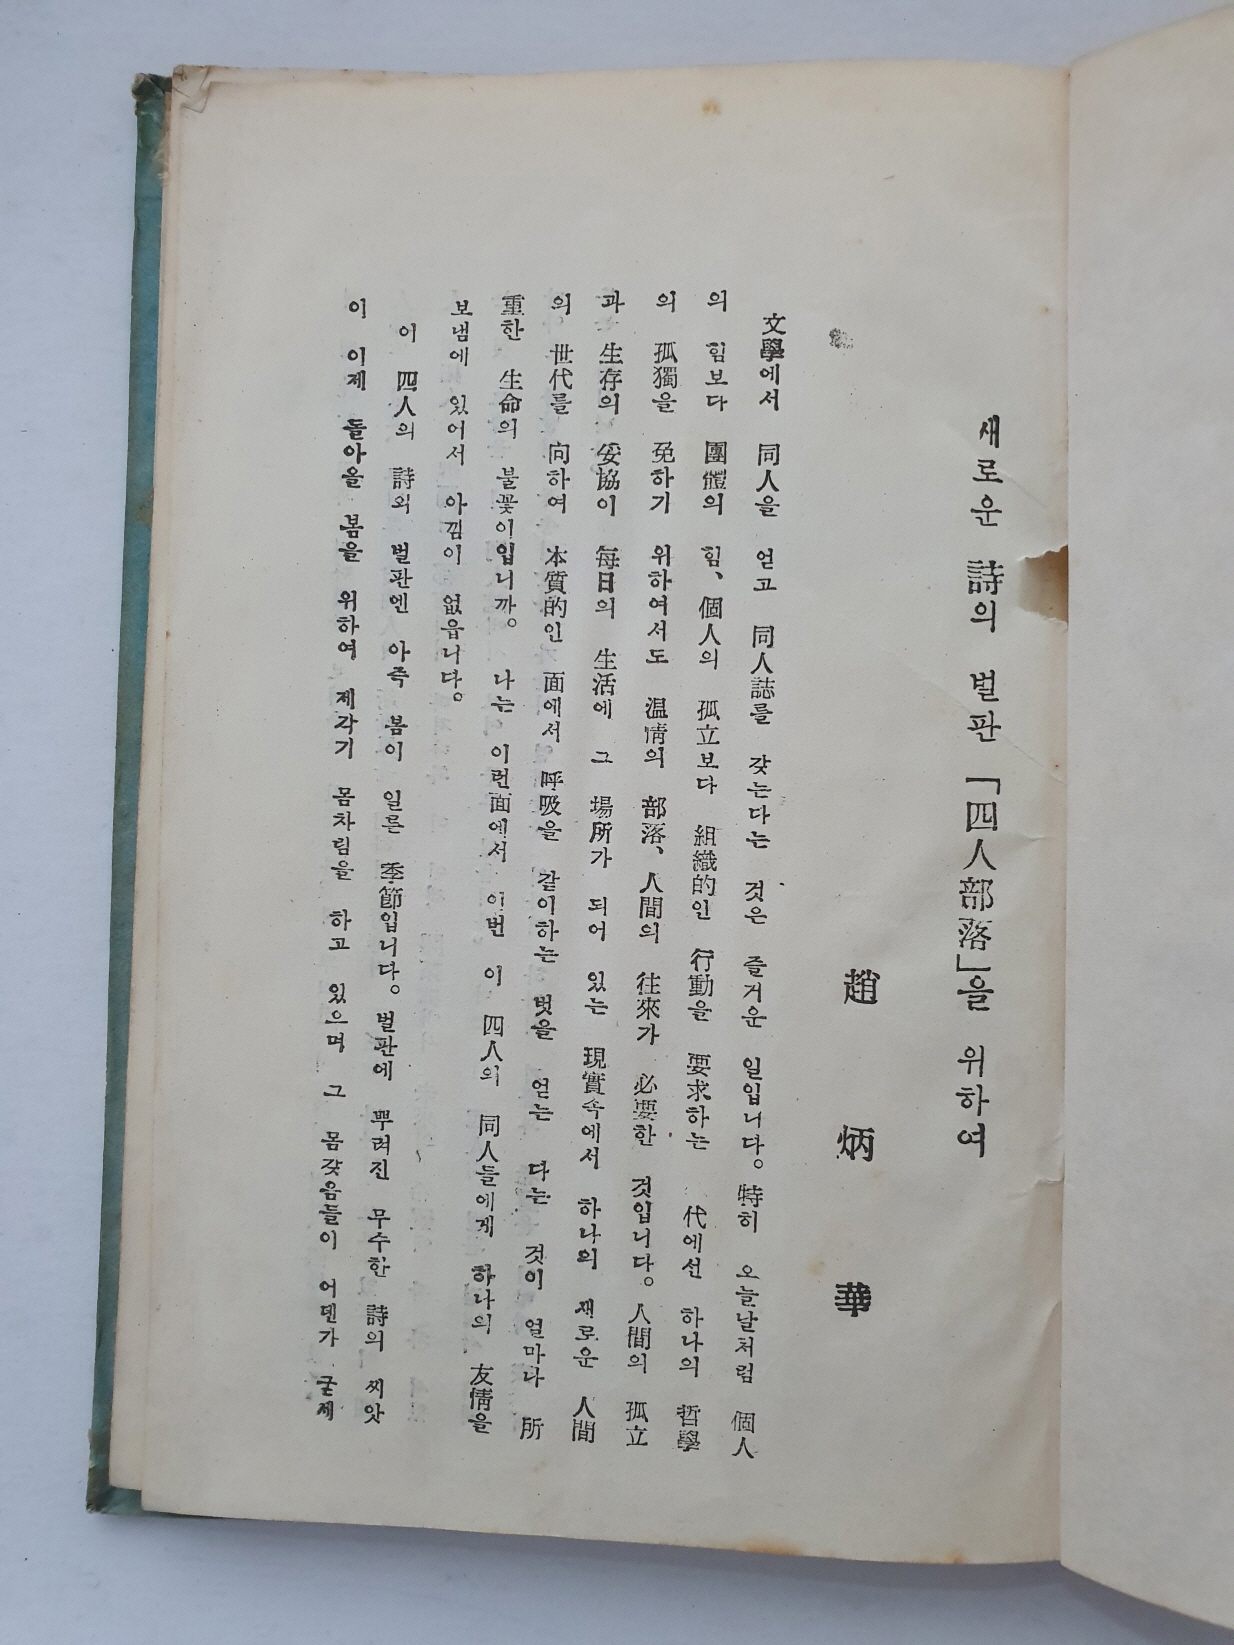 새로운 詩의 벌판 「四人部落」을 위하여
趙 炳 華
文學에서 同人을 얻고 同人誌를 갖는다는 것은 즐거운 일입니다。特히 오늘날처럼 個人
의 힘보다 團體의 힘、個人의 孤立보다 組織的인 行動을 要求하는 代에선 하나의 哲學
의 孤獨을 免하기 위하여서도 温情의 部落、人間의 往來가 必要한 것입니다。人間의 孤立
과 生存의 妥協이 每日의 生活에 그 場所가 되어 있는 現實속에서 하나의 새로운 人間
의 世代를 向하여 本質的인 面에서 呼吸을 같이하는 벗을 얻는 다는 것이 얼마나 所
重한 生命의 불꽃이입니까。 나는 이런面에서 이번 이 四人의 同人들에게 하나의 友情을
보냄에 있어서 아낌이 없읍니다。
이 四人의 詩의 벌판엔 아즉 봄이 일른 季節입니다。벌판에 뿌려진 무수한 詩의 씨앗
이 이제 돌아올 봄을 위하여 제각기 몸차림을 하고 있으며 그 몸갖음들이 어덴가 굳세